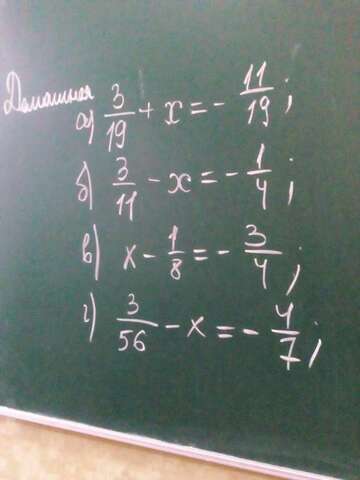 Домашняя
а) 3/19 + x = - 11/19;
б) 3/11 - x = - 1/4;
в) x - 1/8 = - 3/4;
г) 3/56 - x = - 4/7;